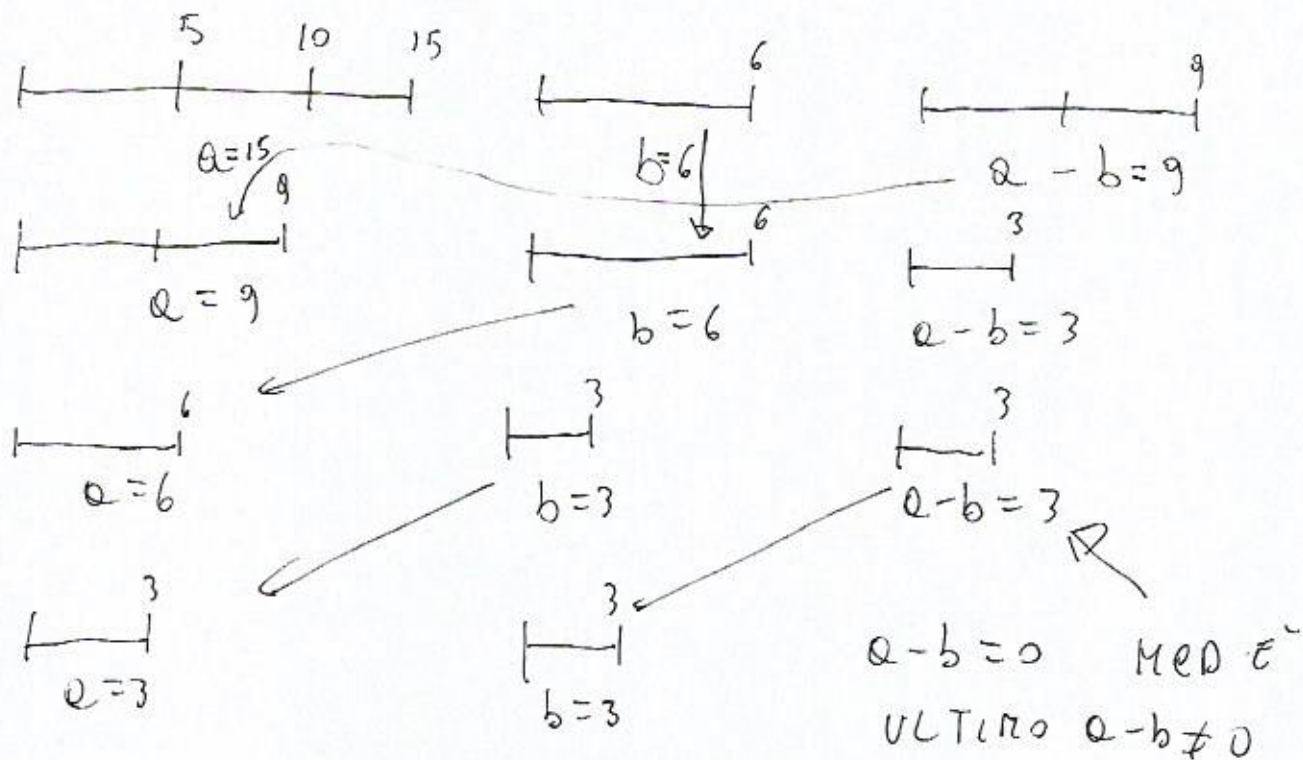 5 10 15 6 9
a=15 b=6 a - b = 9
9 6 3
a = 9 b = 6 a - b = 3
6 3 3
a = 6 b = 3 a - b = 3
3 3
a = 3 b = 3 a - b = 0 MCD È
ULTIMO a - b ≠ 0